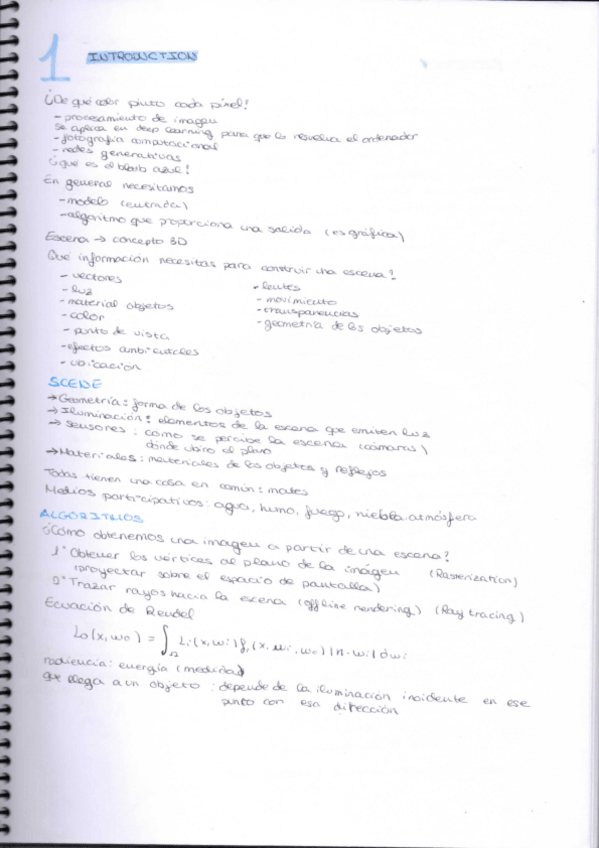 1 INTRODUCTION
¿De qué color pinto cada píxel?
- procesamiento de imagen
se aplica en deep learning para que lo resuelva el ordenador
- fotografía computacional
- redes generativas
¿qué es el blob azul?
En general necesitamos
- modelo (entrada)
- algoritmo que proporciona una salida (es gráfica)
Escena → concepto 3D
Qué información necesitas para construir una escena?
- vectores
- luz
- material objetos
- color
- punto de vista
- efectos ambientales
- ubicación
- lentes
- movimiento
- transparencias
- geometría de los objetos
SCENE
→ Geometría: forma de los objetos
→ Iluminación: elementos de la escena que emiten luz
→ Sensores: cómo se percibe la escena (cámaras)
dónde ubico el plano
→ Materiales: materiales de los objetos y reflejos
Todas tienen una cosa en común: mates
Medios participativos: agua, humo, fuego, niebla atmósfera
ALGORITMOS
¿Cómo obtenemos una imagen a partir de una escena?
1º Obtener los vértices al plano de la imagen (Rasterization)
(proyectar sobre el espacio de pantalla)
2º Trazar rayos hacia la escena (offline rendering) (Ray tracing)
Ecuación de Rendel
Lo(x,wo) = ∫Ω Li(x,wi) fr(x,wi,wo) |n·wi| dwi
radiencia: energía (medida)
que llega a un objeto: depende de la iluminación incidente en ese
punto con esa dirección